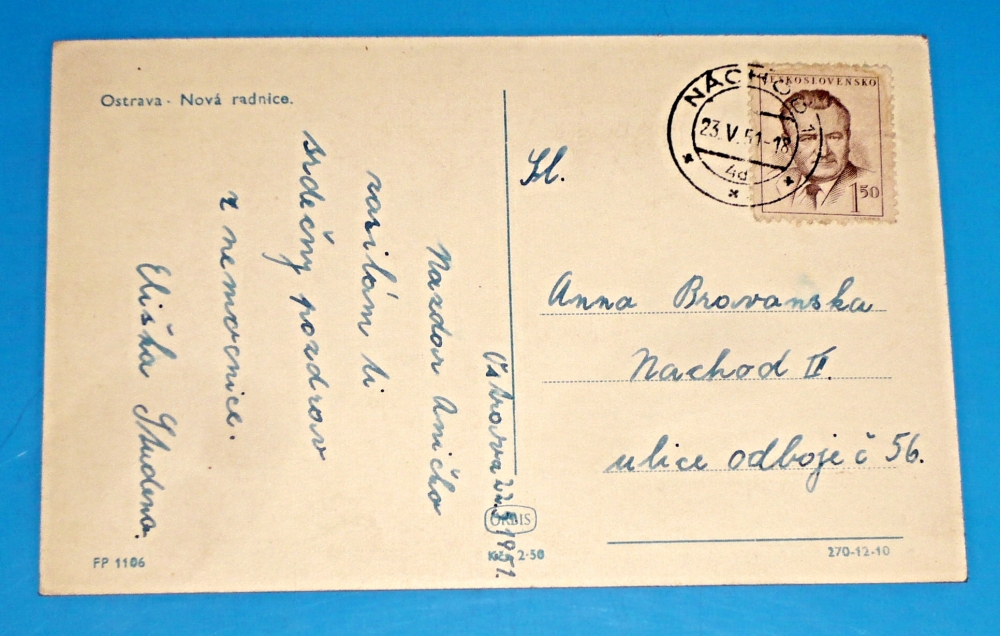 Ostrava - Nová radnice.
NÁCHOD 1
23.V.51-18
4d
ČESKOSLOVENSKO
1 50
Sl.
Anna Bravanska
Nachod II.
ulice odboje č 56.
Ostrava 1951.
Nazdar Aničko
zasílám ti
srdečny pozdrav
z nemocnice.
Eliška Studena.
ORBIS
Kčs 2·50
FP 1106
270-12-10